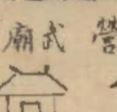 營
武廟